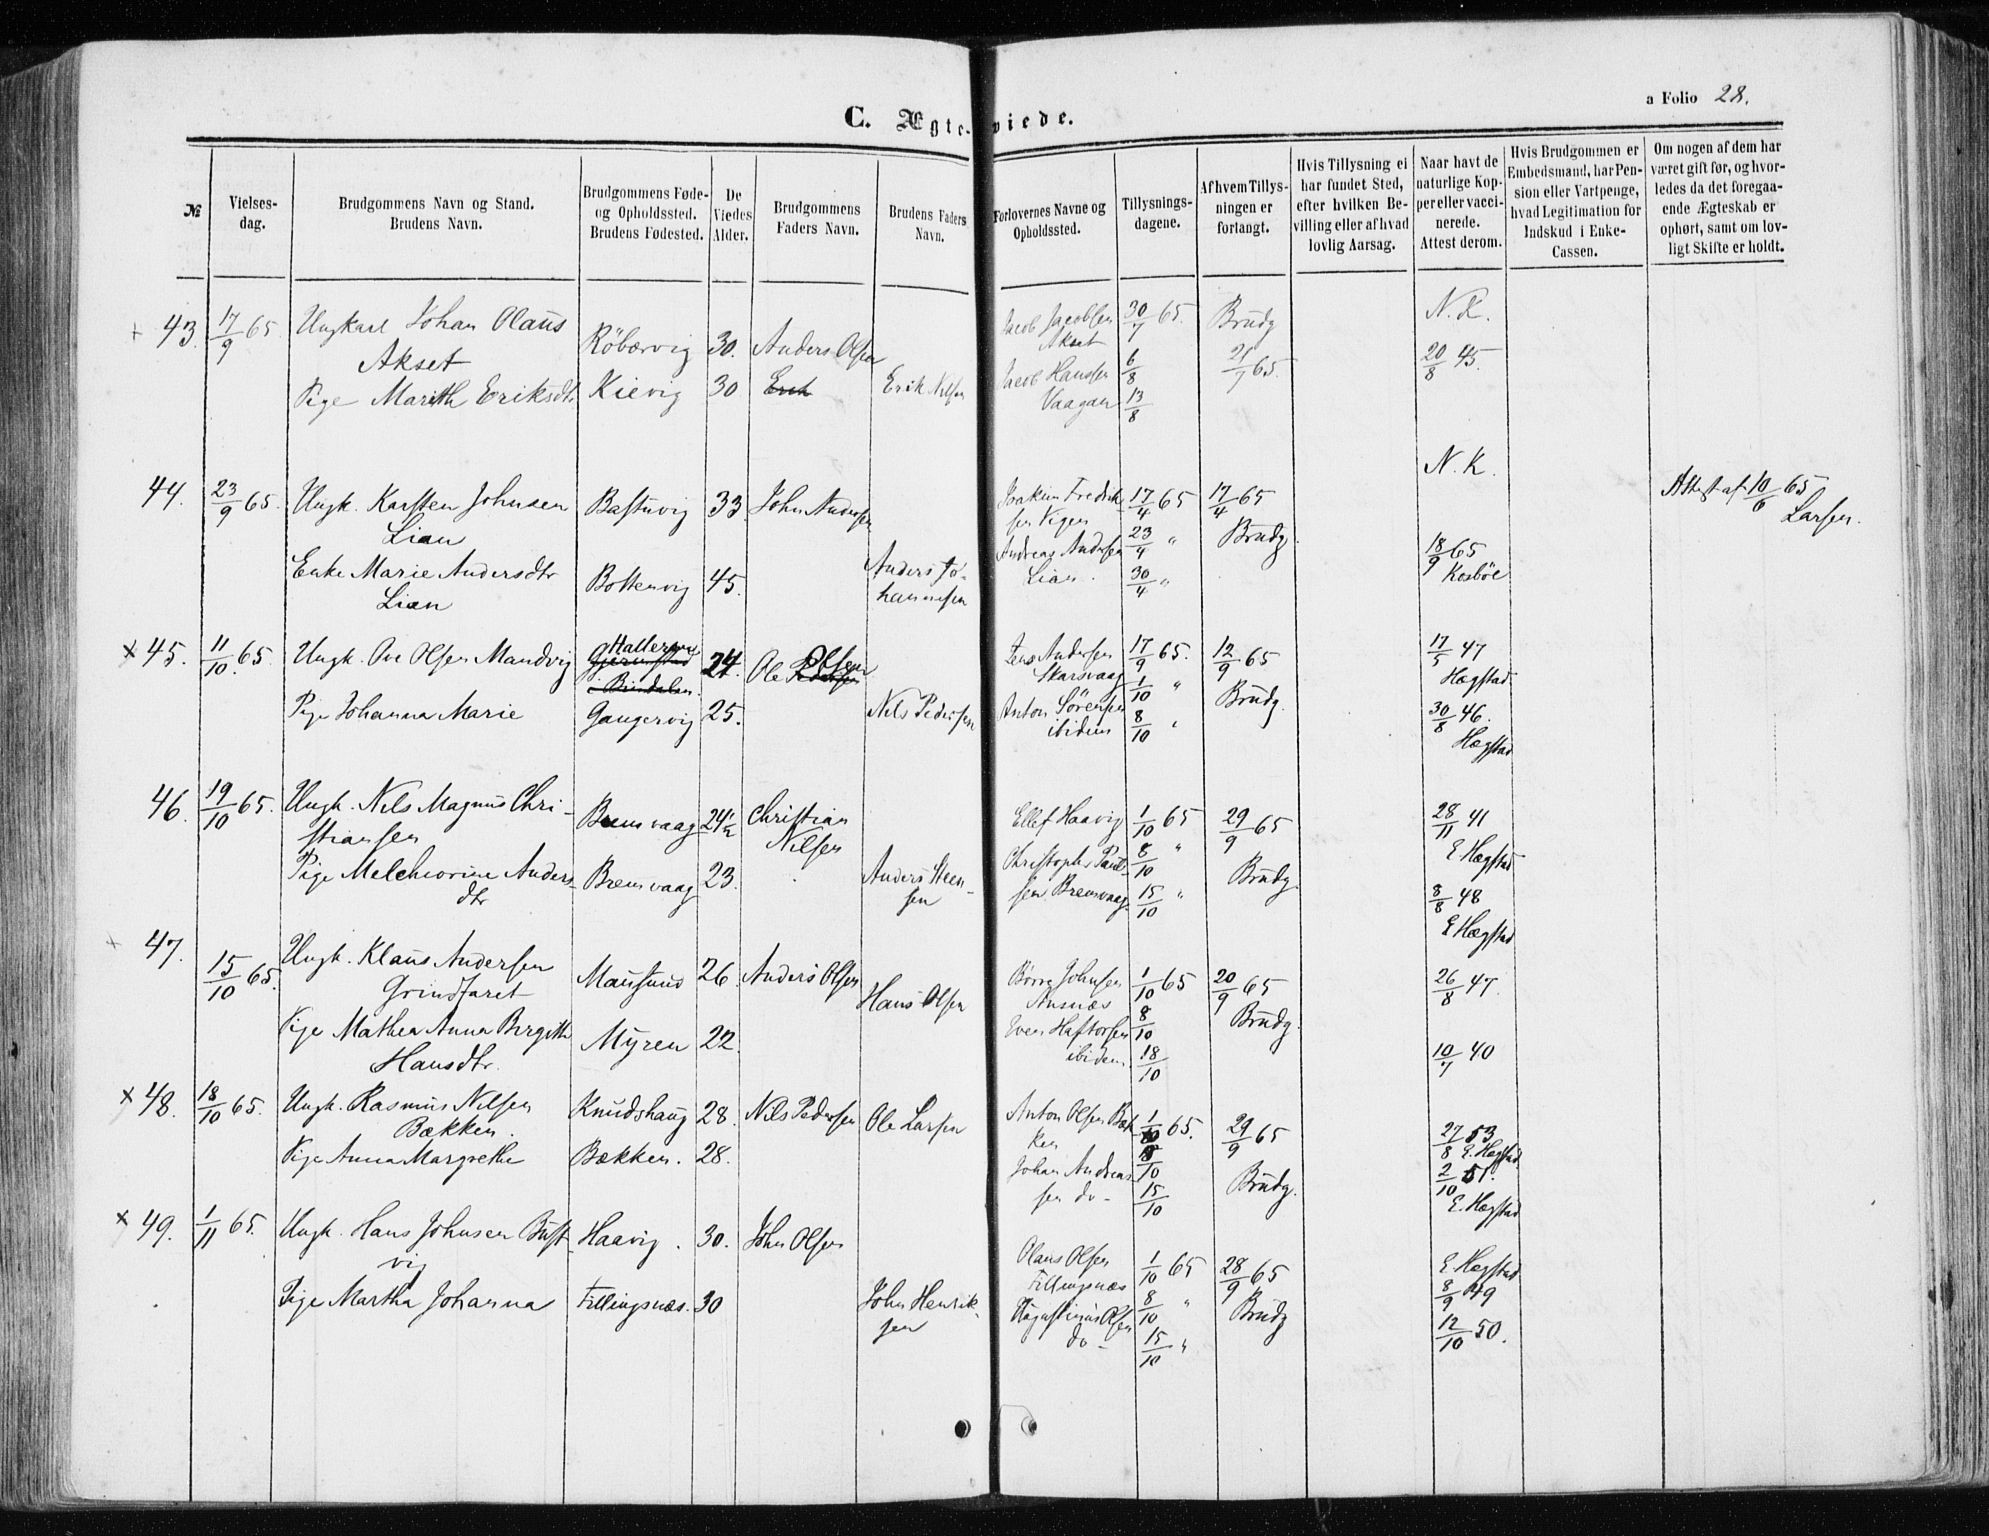 a Folio 28.
C. Ægteviede.
№
Vielsesdag.
Brudgommens Navn og Stand.
Brudens Navn.
Brudgommens Føde-
og Opholdssted.
Brudens Fødested.
De
Viedes
Alder.
Brudgommens
Faders Navn.
Brudens Faders
Navn.
Forlovernes Navne og
Opholdssted.
Tillysnings-
dagene.
Af hvem Tillys-
ningen er
forlangt.
Hvis Tillysning ei
har fundet Sted,
efter hvilken Be-
villing eller af hvad
lovlig Aarsag.
Naar havt de
naturlige Kop-
per eller vacci-
nerede.
Attest derom.
Hvis Brudgommen er
Embedsmand, har Pen-
sion eller Vartpenge,
hvad Legitimation for
Indskud i Enke-
Cassen.
Om nogen af dem har
været gift før, og hvor-
ledes da det foregaa-
ende Ægteskab er
ophørt, samt om lov-
ligt Skifte er holdt.
43. 17/9 65. Ungkarl Johan Olaus Akset Röbærvig 30. Anders Olsen
Pige Marith Eriksdtr Kievig 30 Erik Nilsen
Jacob Jacobsen Akset 30/7 65. Brudg N. K.
Jacob Hansen Vaagan 6/8 21/7 65. 20/8 45.
13/8
44. 23/9 65. Ungk. Karsten Johnsen Lian Bastuvig 33. John Andersen
Enke Marie Andersdtr Lian Bottenvig 45. Anders Johannesen
Joakim Fredriksen Vigen 17/4 65 17/4 65 N. K.
Andreas Andersen Lian. 23/4 " Brudg. 18/9 65 Kosböe
30/4 "
Attest af 10/6 65 Larsen.
x 45. 11/10 65. Ungk. Ove Olsen Mandvig 24. Ole Olsen
Pige Johanna Marie Gangervig 25. Nils Pedersen
Jens Andersen Skarsvaag 17/9 65. 12/9 65 17/5 47 Hægstad
Anton Sörensen ibidem 1/10 " Brudg. 30/8 46. Hægstad
8/10 "
46. 19/10 65. Ungk. Nils Magnus Christiansen Bremsvaag 24½ Christian Nilsen
Pige Melchiorine Andersdtr Bremsvaag 23. Anders Steensen
Ellef Haavig 1/10 65 29/9 65 28/11 41 E Hægstad
Christoph. Paulsen Bremsvaag 8/10 " Brudg. 8/8 48 E Hægstad
15/10 "
47. 15/10 65. Ungk. Klaus Andersen Grindfaret Mausund 26. Anders Olsen
Pige Mathea Anna Bergitthe Hansdtr. Myren 22. Hans Olsen
Börre Johnsen Ansnæs 1/10 65 20/9 65 26/8 47.
Even Haftorsen ibidem 8/10 Brudg. 10/7 40
18/10
x 48. 18/10 65. Ungk. Rasmus Nilsen Bækken. Knudshaug 28. Nils Pedersen
Pige Anna Margrethe Bækken. 28. Ole Larsen
Anton Olsen Bækken 1/10 65. 29/9 65 27/8 53 E. Hægstad
Johan Andreassen do- 8/10 Brudg. 2/10 51. E. Hægstad
15/10
x 49. 1/11 65. Ungk. Hans Johnsen Bustvig Haavig. 30. John Olsen
Pige Martha Johanna Fillingsnæs. 30 John Henriksen
Olaus Olsen Fillingsnæs 1/10 65 28/9 65 E Hægstad 8/9 49
Augustinus Olsen do- 8/10 " Brudg 12/10 50.
15/10 "